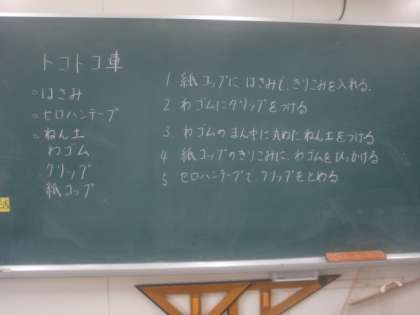 トコトコ車
○はさみ
○セロハンテープ
○ねん土
わゴム
クリップ
紙コップ
1 紙コップに はさみで、きりこみを入れる。
2 わゴムにクリップをつける
3 わゴムのまん中に丸めたねん土をつける
4 紙コップのきりこみに、わゴムをひっかける
5 セロハンテープで、クリップをとめる